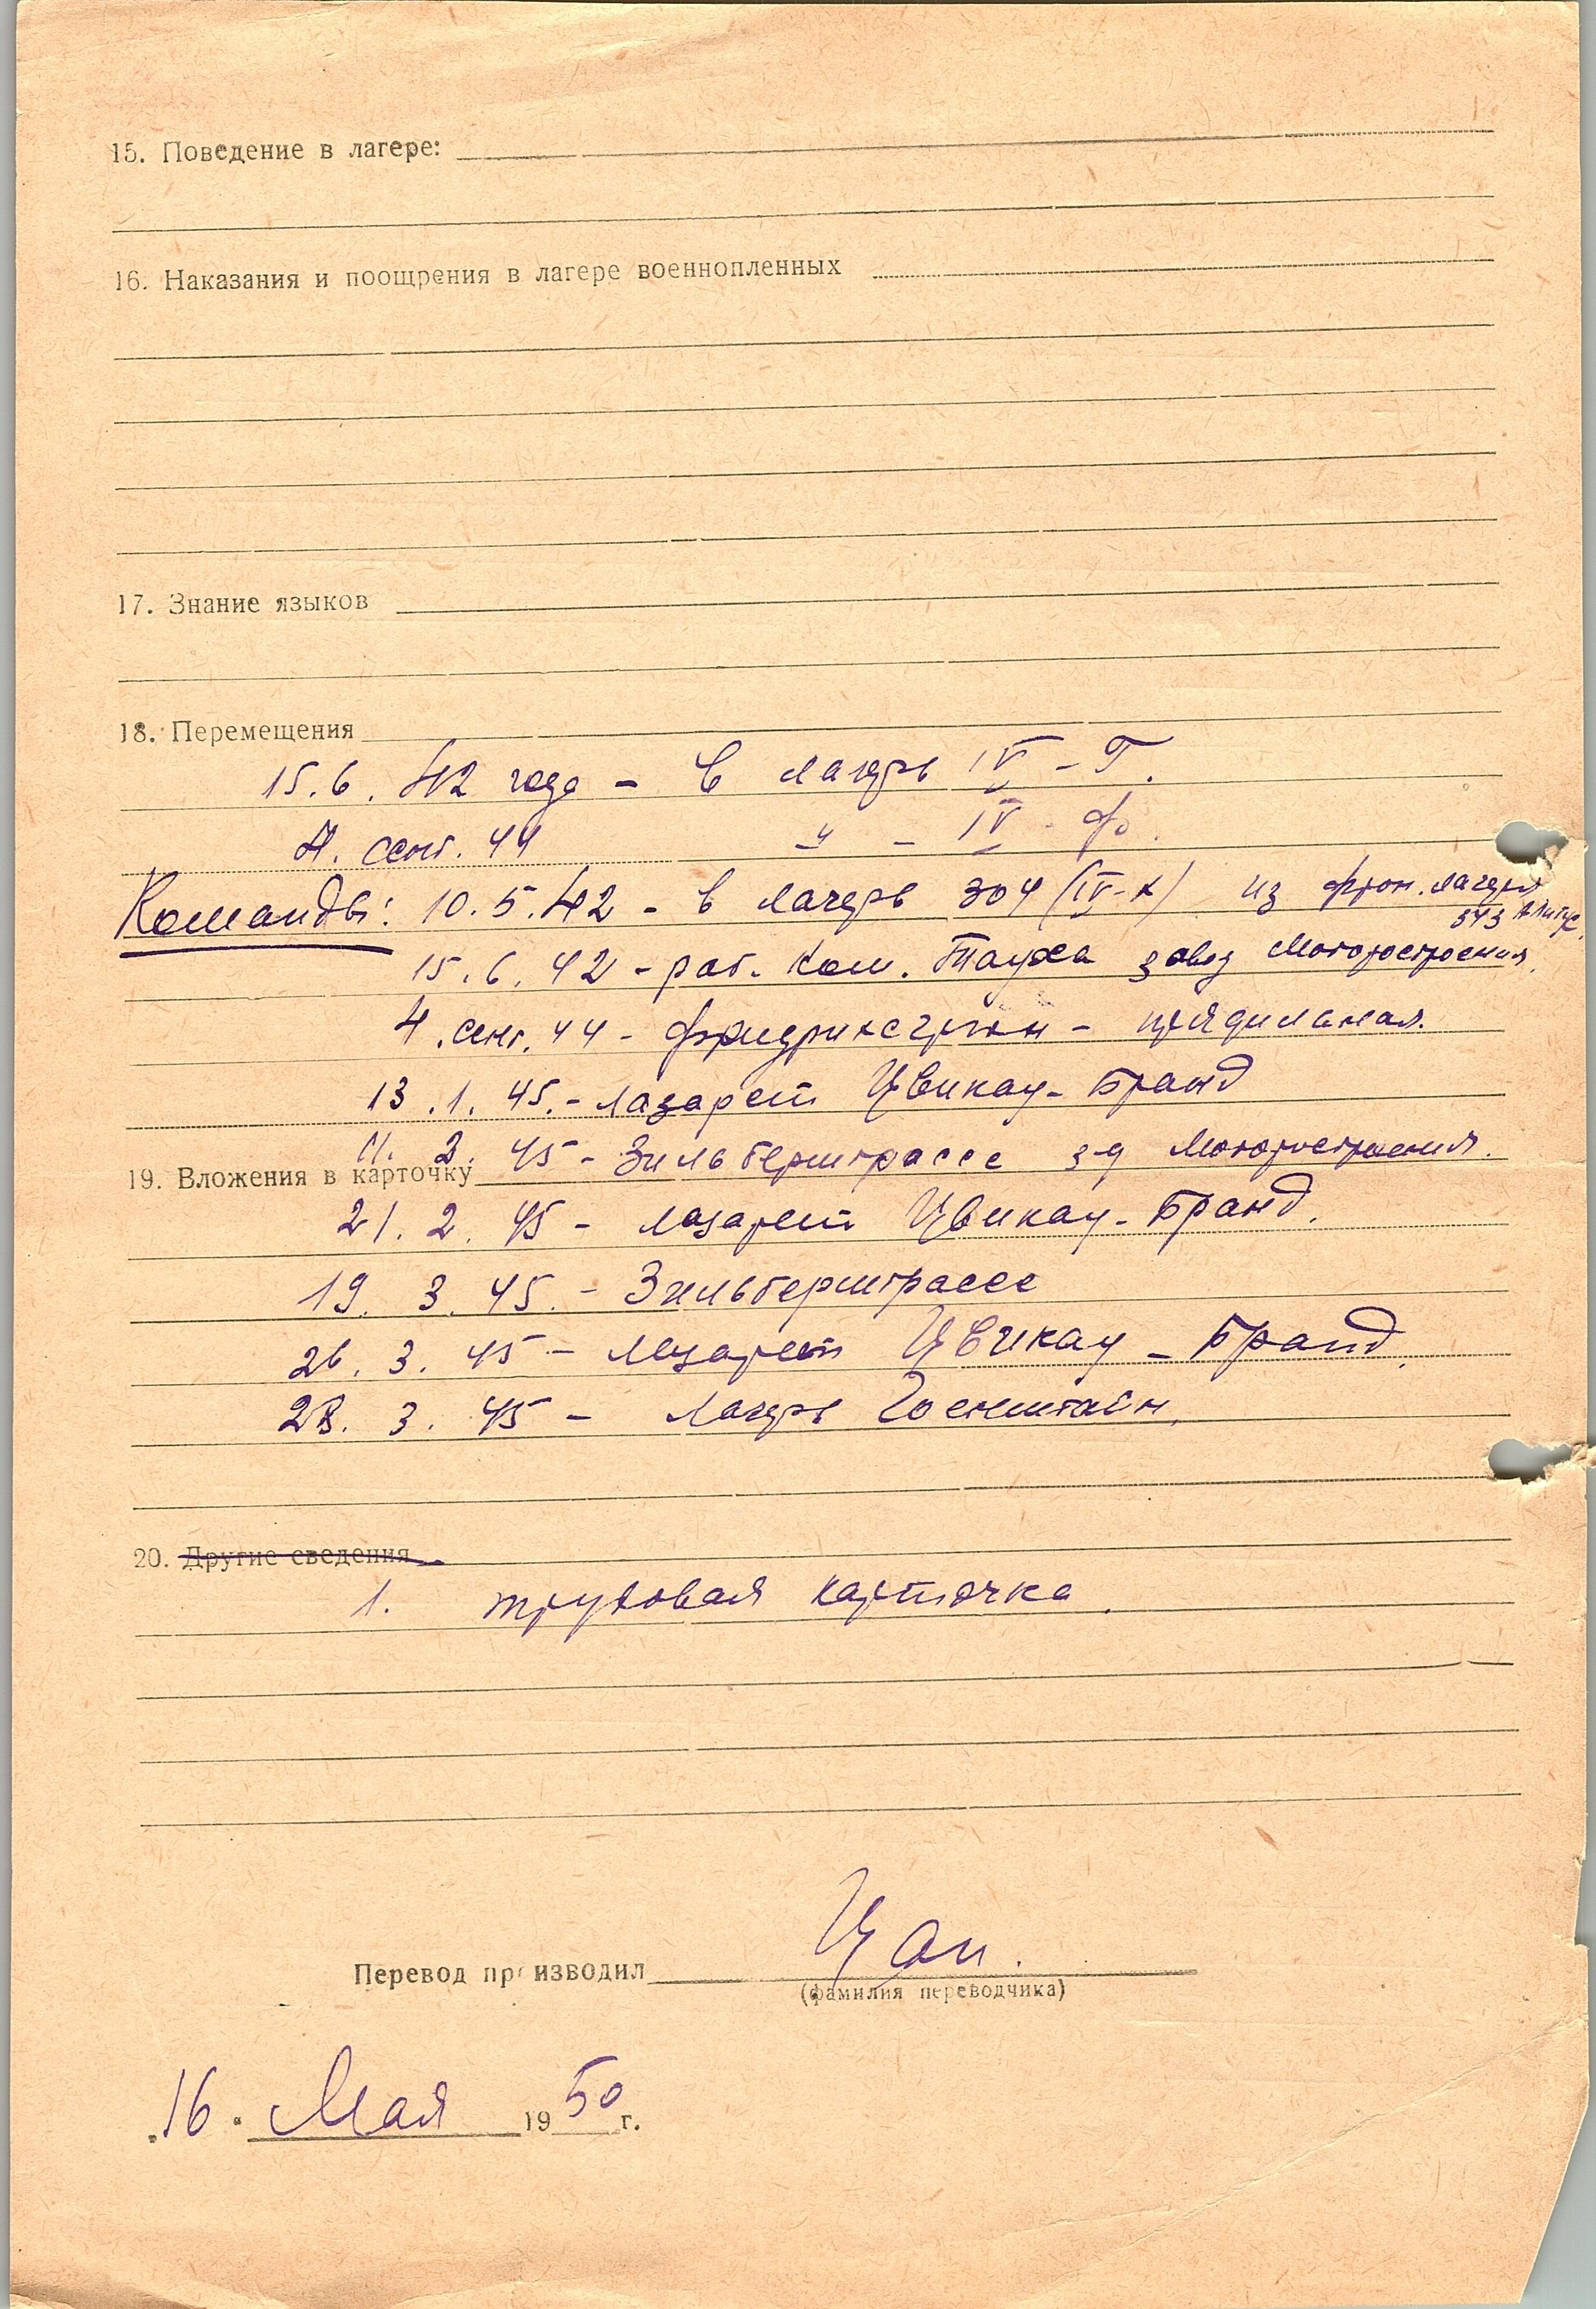 15. Поведение в лагере:
16. Наказания и поощрения в лагере военнопленных
17. Знание языков
18. Перемещения
15.6.42 года - в лагерь IV - Г.
4. сент. 44 -"- IV - Ф.
Команды: 10.5.42 - в лагерь 304 (IV-К) из фрон. лагеря
343 Алитус.
15.6.42 - раб. ком. Тауха завод Моторостроения.
4. сент. 44 - Фридрихсгрюн - прядильная.
13.1.45. - лазарет Цвикау - Бранд
11. 2. 45 - Зильберштрассе з-д Моторостроения.
19. Вложения в карточку
21. 2. 45 - лазарет Цвикау - Бранд.
19. 3. 45. - Зильберштрассе
26. 3. 45 - лазарет Цвикау - Бранд.
28. 3. 45 - лагерь Гоенштайн.
20. Другие сведения
1. трудовая карточка.
Перевод производил Цап.
(фамилия переводчика)
16. Мая 1950 г.